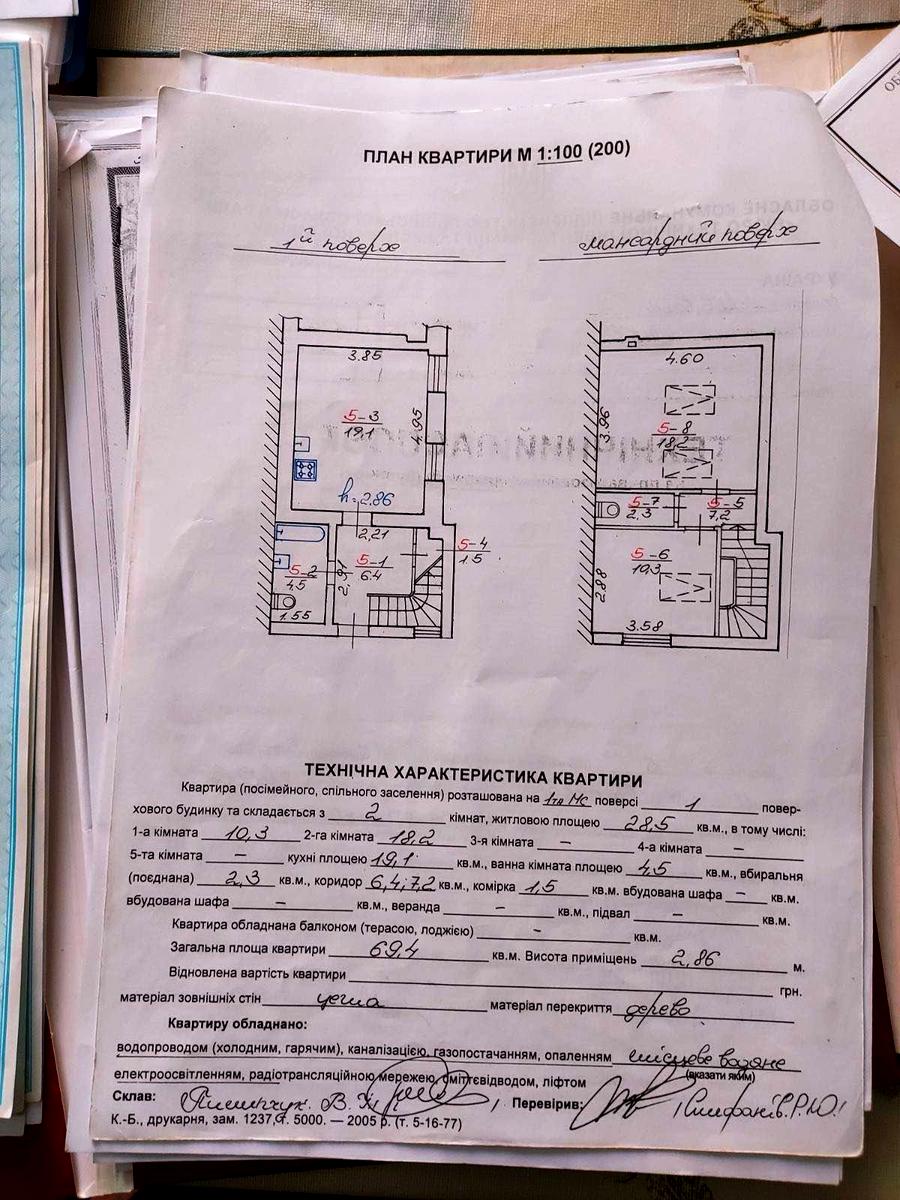 ПЛАН КВАРТИРИ М 1:100 (200)
1й поверх
мансардний поверх
3.85
5-3
19,1
4.95
h=2.86
2,21
5-4
1.5
5-2
4.5
5-1
6.4
2,91
1.55
4.60
3.96
5-8
18,2
5-7
2.3
5-5
7,2
5-6
10,3
2.88
3.58
ТЕХНІЧНА ХАРАКТЕРИСТИКА КВАРТИРИ
Квартира (посімейного, спільного заселення) розташована на 1та МС поверсі 1 повер-
хового будинку та складається з 2 кімнат, житловою площею 28,5 кв.м., в тому числі:
1-а кімната 10,3 2-га кімната 18,2 3-я кімната – 4-а кімната –
5-та кімната – кухні площею 19,1 кв.м., ванна кімната площею 4,5 кв.м., вбиральня
(поєднана) 2,3 кв.м., коридор 6,4; 7,2 кв.м., комірка 1,5 кв.м. вбудована шафа – кв.м.
вбудована шафа – кв.м., веранда – кв.м., підвал – кв.м.
Квартира обладнана балконом (терасою, лоджією) – кв.м.
Загальна площа квартири 69,4 кв.м. Висота приміщень 2,86 м.
Відновлена вартість квартири грн.
матеріал зовнішніх стін цегла матеріал перекриття дерево
Квартиру обладнано:
водопроводом (холодним, гарячим), каналізацією, газопостачанням, опаленням місцеве водяне
(вказати яким)
електроосвітленням, радіотрансляційною мережею, сміттєвідводом, ліфтом
Склав: В. Перевірив: Р.Ю.
К.-Б., друкарня, зам. 1237, т. 5000. — 2005 р. (т. 5-16-77)